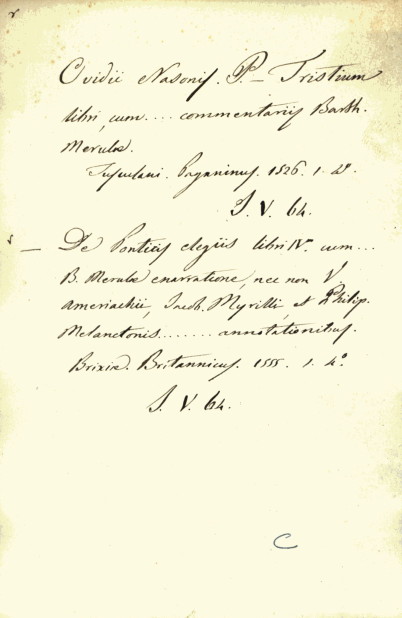 Ovidii Nasonis. P. – Tristium
libri, cum .... commentariis Barth.
Merulæ.
Tusculani. Paganinus. 1526. 1. 4º.
S. V. 64.
— De Ponticis elegiis libri IV. cum ...
B. Merulæ enarratione, nec non V.
Ameriachii, Jacob. Myrilli, et Philip.
Melanctonis ........ annotationibus.
Brixiæ. Britannicus. 1555. 1. 4º
S. V. 64.
C